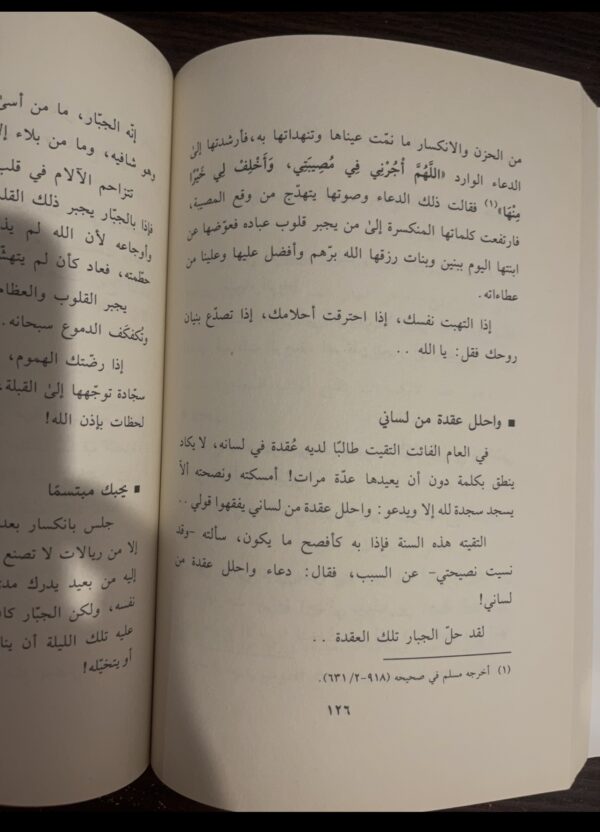 من الحزن والانكسار ما نمّت عيناها وتنهداتها به، فأرشدتها إلىٰ
الدعاء الوارد «اللَّهُمَّ أْجُرْنِي فِي مُصِيبَتِي، وَأَخْلِفْ لِي خَيْرًا
مِنْهَا»(١) فقالت ذلك الدعاء وصوتها يتهدّج من وقع المصيبة،
فارتفعت كلماتها المنكسرة إلىٰ من يجبر قلوب عباده فعوّضها عن
ابنتها اليوم ببنين وبنات رزقها الله برّهم وأفضل عليها وعلينا من
عطاءاته.
إذا التهبت نفسك، إذا احترقت أحلامك، إذا تصدّع بنيان
روحك فقل: يا الله ..
■ واحلل عقدة من لساني
في العام الفائت التقيت طالبًا لديه عُقدة في لسانه، لا يكاد
ينطق بكلمة دون أن يعيدها عدّة مرات! أمسكته ونصحته ألاّ
يسجد سجدة لله إلا ويدعو: واحلل عقدة من لساني يفقهوا قولي ..
التقيته هذه السنة فإذا به كأفصح ما يكون، سألته -وقد
نسيت نصيحتي- عن السبب، فقال: دعاء واحلل عقدة من
لساني!
لقد حلّ الجبار تلك العقدة ..
(١) أخرجه مسلم في صحيحه (٩١٨-٢/ ٦٣١).
١٢٦
إنّه الجبّار، ما من
وهو شافيه، وما من بلاء
تتزاحم الآلام في
فإذا بالجبّار يجبر ذلك
وأوجاعه لأن الله لم
حطّمته، فعاد كأن لم
يجبر القلوب والعظام
وتُكفكَف الدموع سبحانه.
إذا رضّتك الهموم،
سجّادة توجّهها إلىٰ القبلة،
لحظات بإذن الله!
■ يحبك مبتسمًا
جلس بانكسار
إلا من ريالات لا تصنع
إليه من بعيد يدرك
نفسه، ولكن الجبّار
عليه تلك الليلة أن
أو يتخيّله!